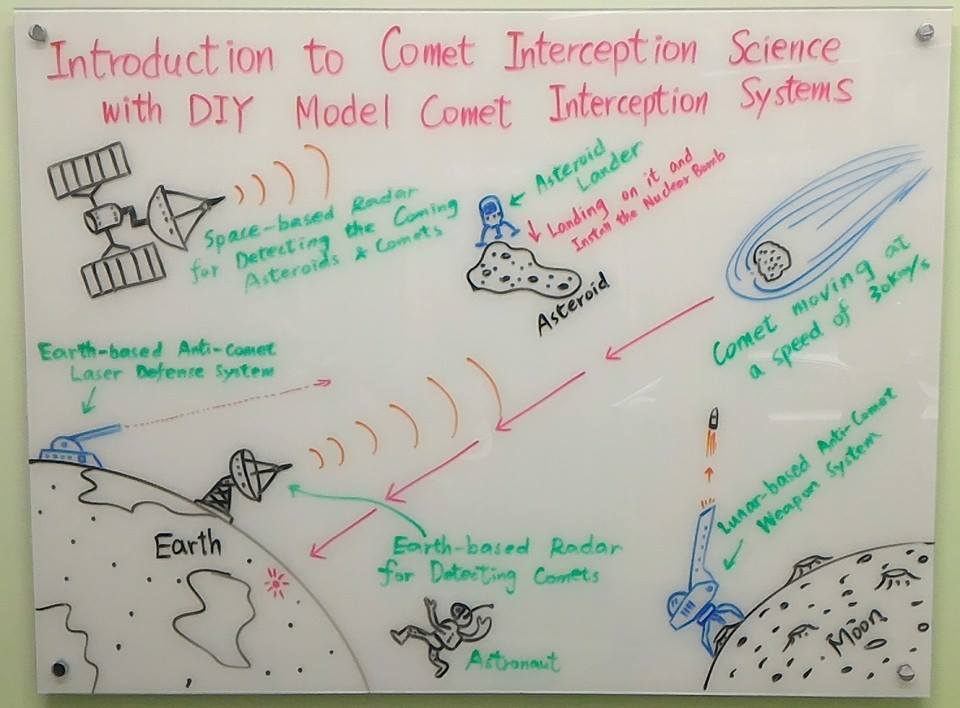 Introduction to Comet Interception Science
with DIY Model Comet Interception Systems
Space-based Radar
for Detecting the Coming
Asteroids & Comets
Asteroid
Lander
Landing on it and
Install the Nuclear Bomb
Asteroid
Comet moving at
a speed of 30km/s
Earth-based Anti-Comet
Laser Defense System
Earth
Earth-based Radar
for Detecting Comets
Astronaut
Lunar-based Anti-Comet
Weapon System
Moon